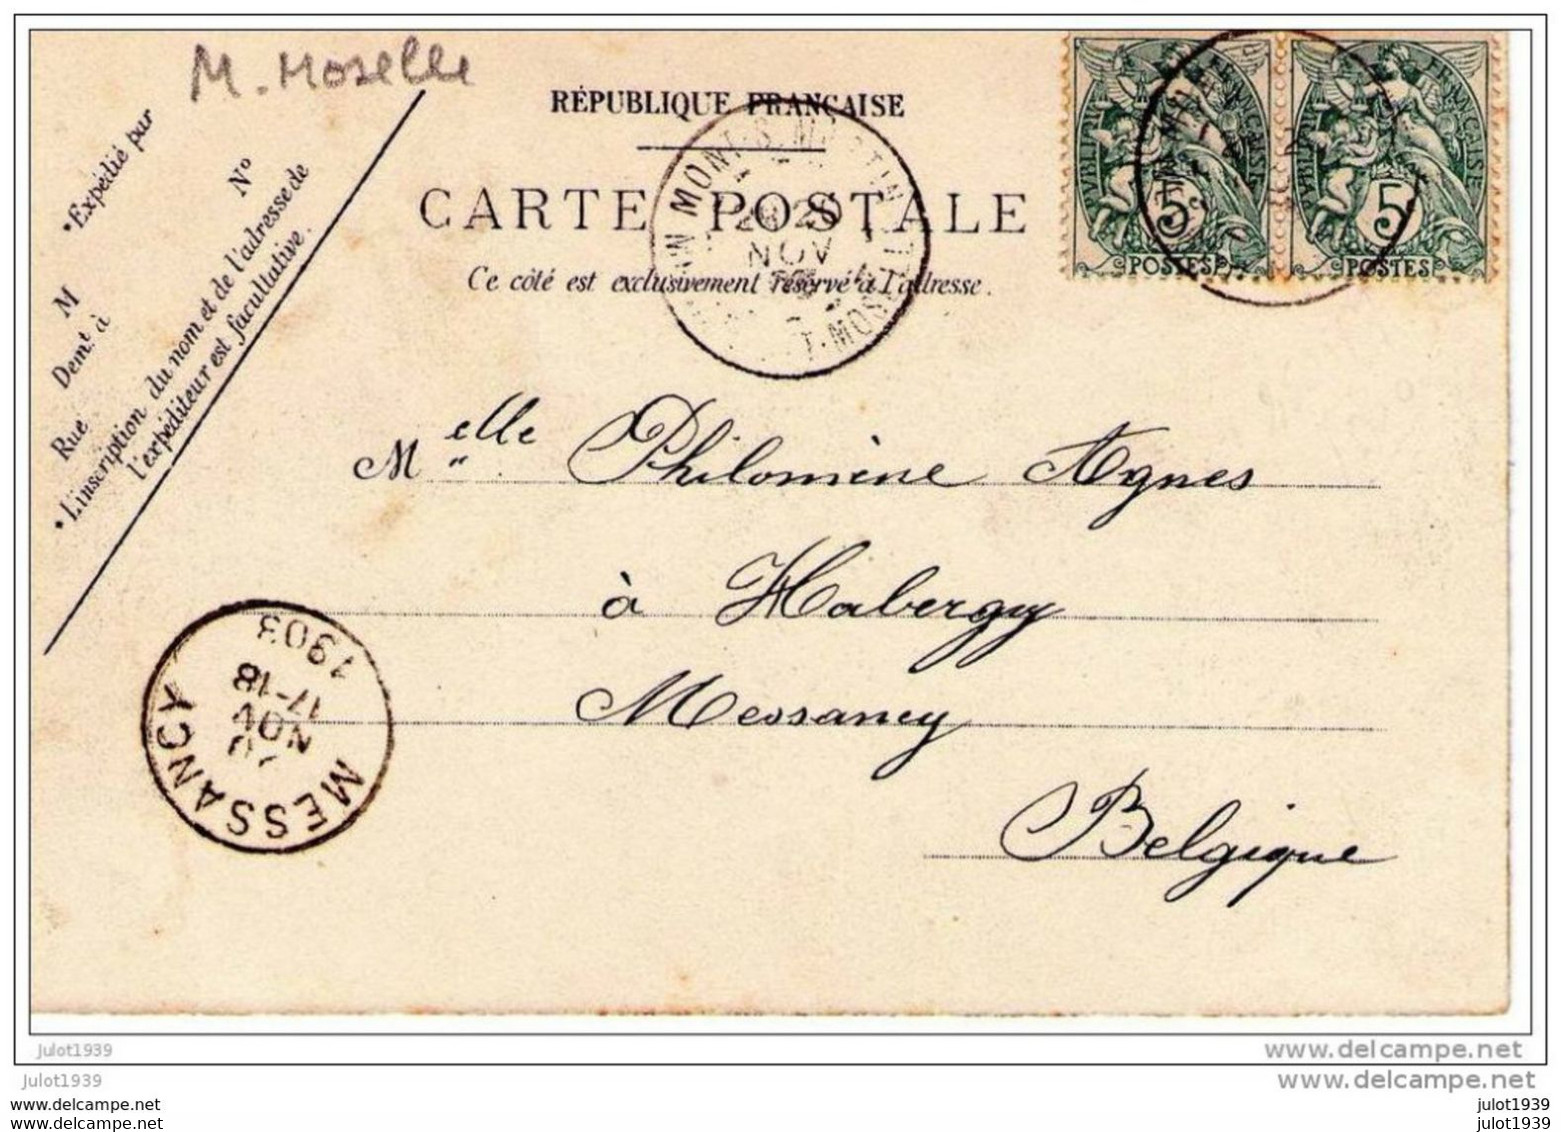 M. Moselle
RÉPUBLIQUE FRANÇAISE
CARTE POSTALE
Ce côté est exclusivement réservé à l'adresse.
• Expédié par
M
N°
Demt à
Rue
• L'inscription du nom et de l'adresse de
l'expéditeur est facultative.
MONT-S-MARTIN
NOV
T-MOSELLE
RÉPUBLIQUE FRANÇAISE
5
POSTES
RÉPUBLIQUE FRANÇAISE
5
POSTES
Melle Philomène Agnes
à Habergy
Messancy
Belgique
MESSANCY
NOV
17-18
1903
julot1939
www.delcampe.net
julot1939
www.delcampe.net
www.delcampe.net
www.delcampe.net
julot1939
julot1939